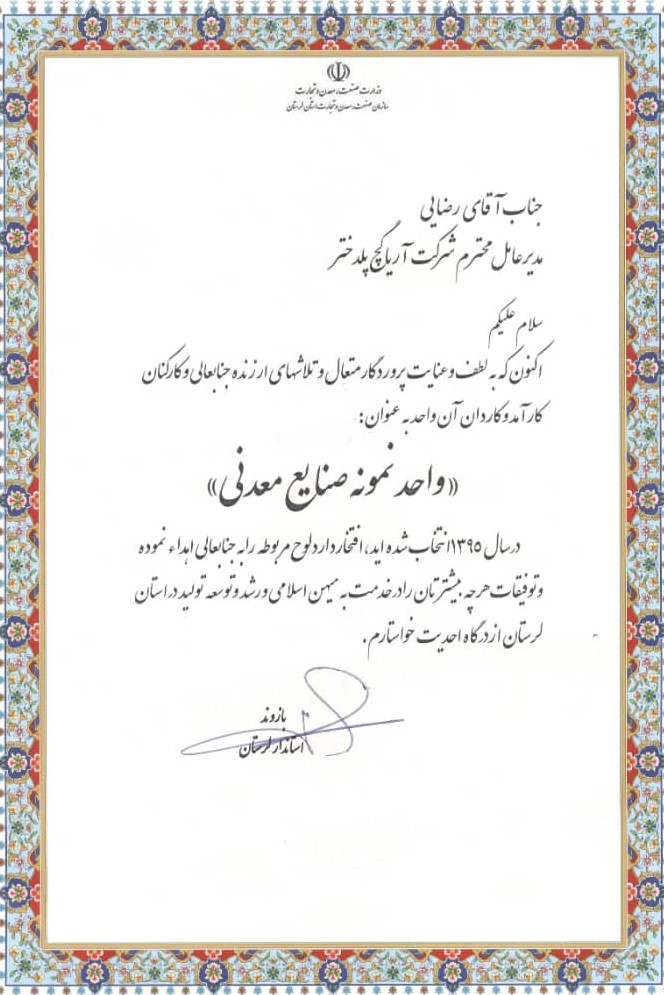 وزارت صنعت، معدن و تجارت
سازمان صنعت، معدن و تجارت استان لرستان
جناب آقای رضایی
مدیرعامل محترم شرکت آریا گچ پلدختر
سلام علیکم
اکنون که به لطف و عنایت پروردگار متعال و تلاشهای ارزنده جنابعالی و کارکنان
کارآمد و کاردان آن واحد به عنوان:
«واحد نمونه صنایع معدنی»
درسال ۱۳۹۵ انتخاب شده اید، افتخار دارد لوح مربوطه را به جنابعالی اهداء نموده
و توفیقات هرچه بیشترتان را در خدمت به میهن اسلامی و رشد و توسعه تولید در استان
لرستان از درگاه احدیت خواستارم.
بازوند
استاندار لرستان